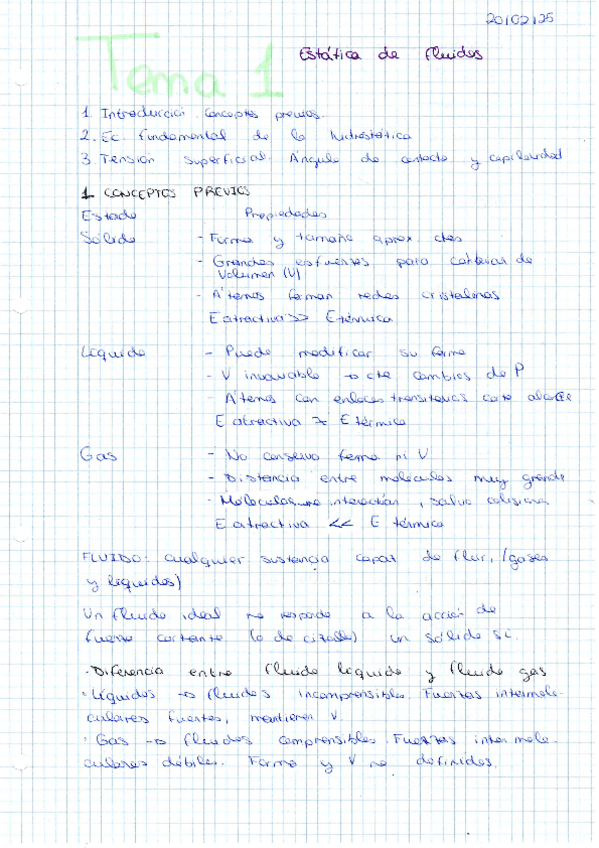 20/02/25
Tema 1 Estática de fluidos
1. Introducción. Conceptos previos.
2. Ec. fundamental de la hidrostática
3. Tensión superficial. Ángulo de contacto y capilaridad
1. CONCEPTOS PREVIOS
Estado Propiedades
Sólido - Forma y tamaño aprox ctes
- Grandes esfuerzos para cambiar de
Volumen (V)
- Átomos forman redes cristalinas
E atractiva >> E térmica
Líquido - Puede modificar su forma
- V invariable → cte cambios de P
- Átomos con enlaces transitorios corto alcance
E atractiva > E térmica
Gas - No conserva forma ni V
- Distancia entre moléculas muy grande
- Moléculas no interactúan, salvo colisiones
E atractiva << E térmica
FLUIDO: cualquier sustancia capaz de fluir, (gases
y líquidos)
Un fluido ideal no responde a la acción de
fuerza cortante (o de cizalla) un sólido sí.
· Diferencia entre fluido líquido y fluido gas
· Líquidos → fluidos incomprensibles. Fuerzas intermole-
culares fuertes, mantienen V.
· Gas → fluidos comprensibles. Fuerzas intermole-
culares débiles. Forma y V no definidos.